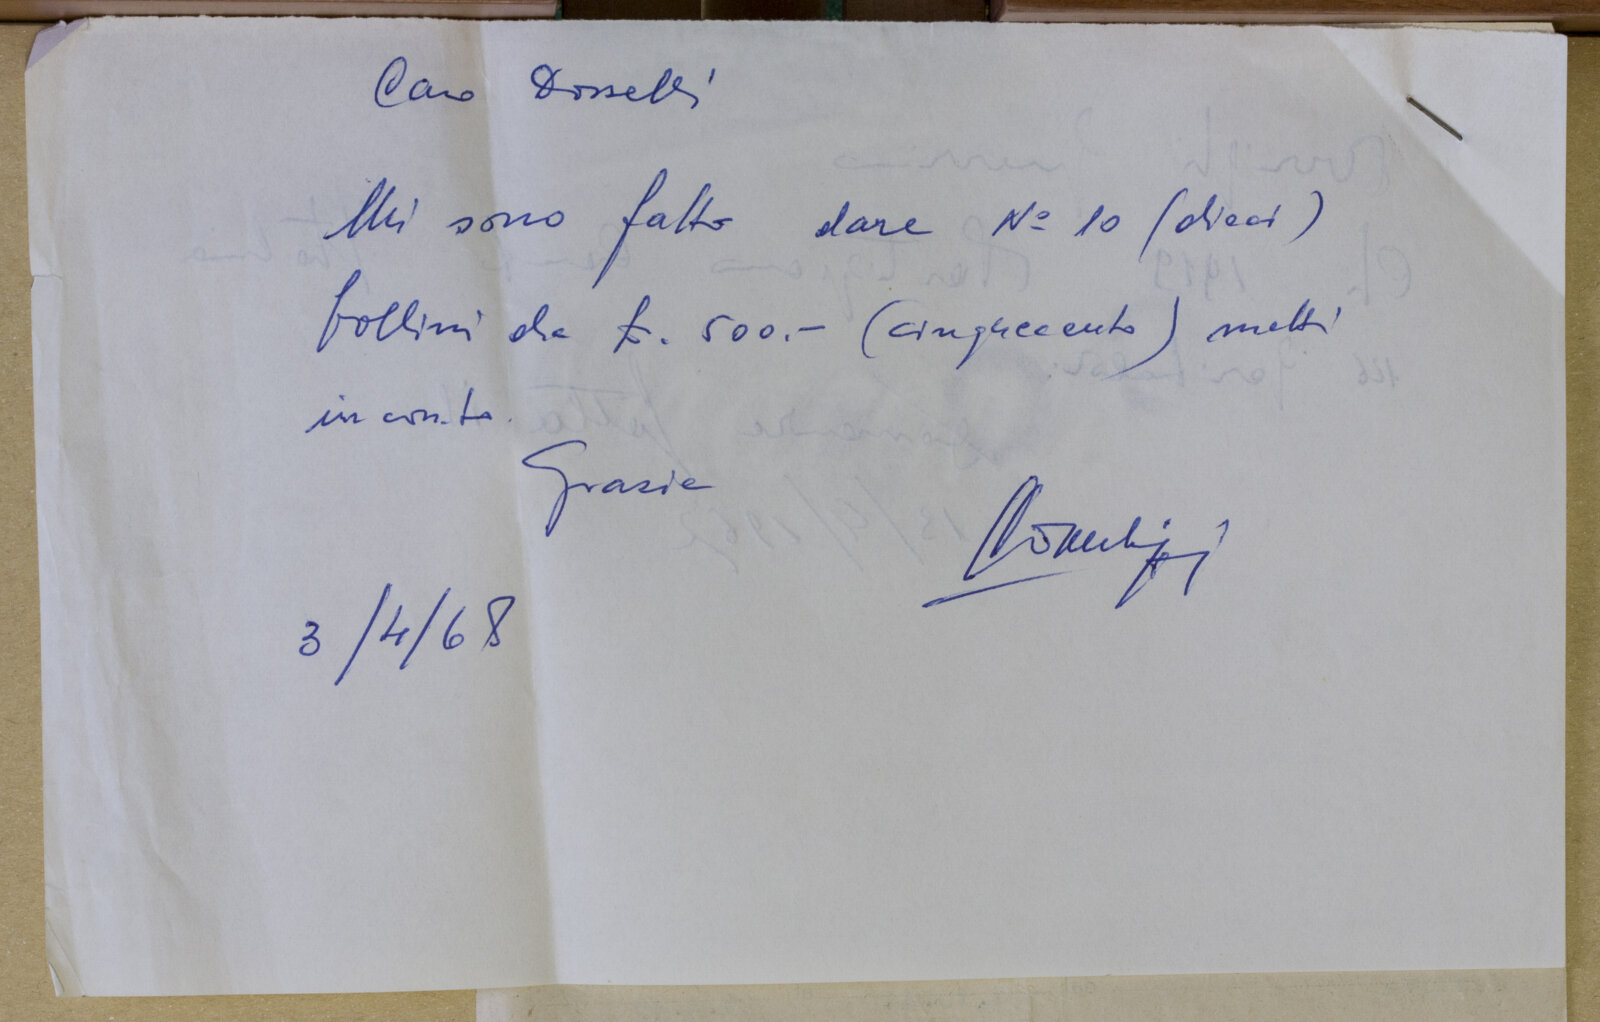 Caro Dosselli
Mi sono fatto dare Nº 10 (dieci)
bollini da £. 500.- (cinquecento) metti
in conto.
Grazie
3/4/68